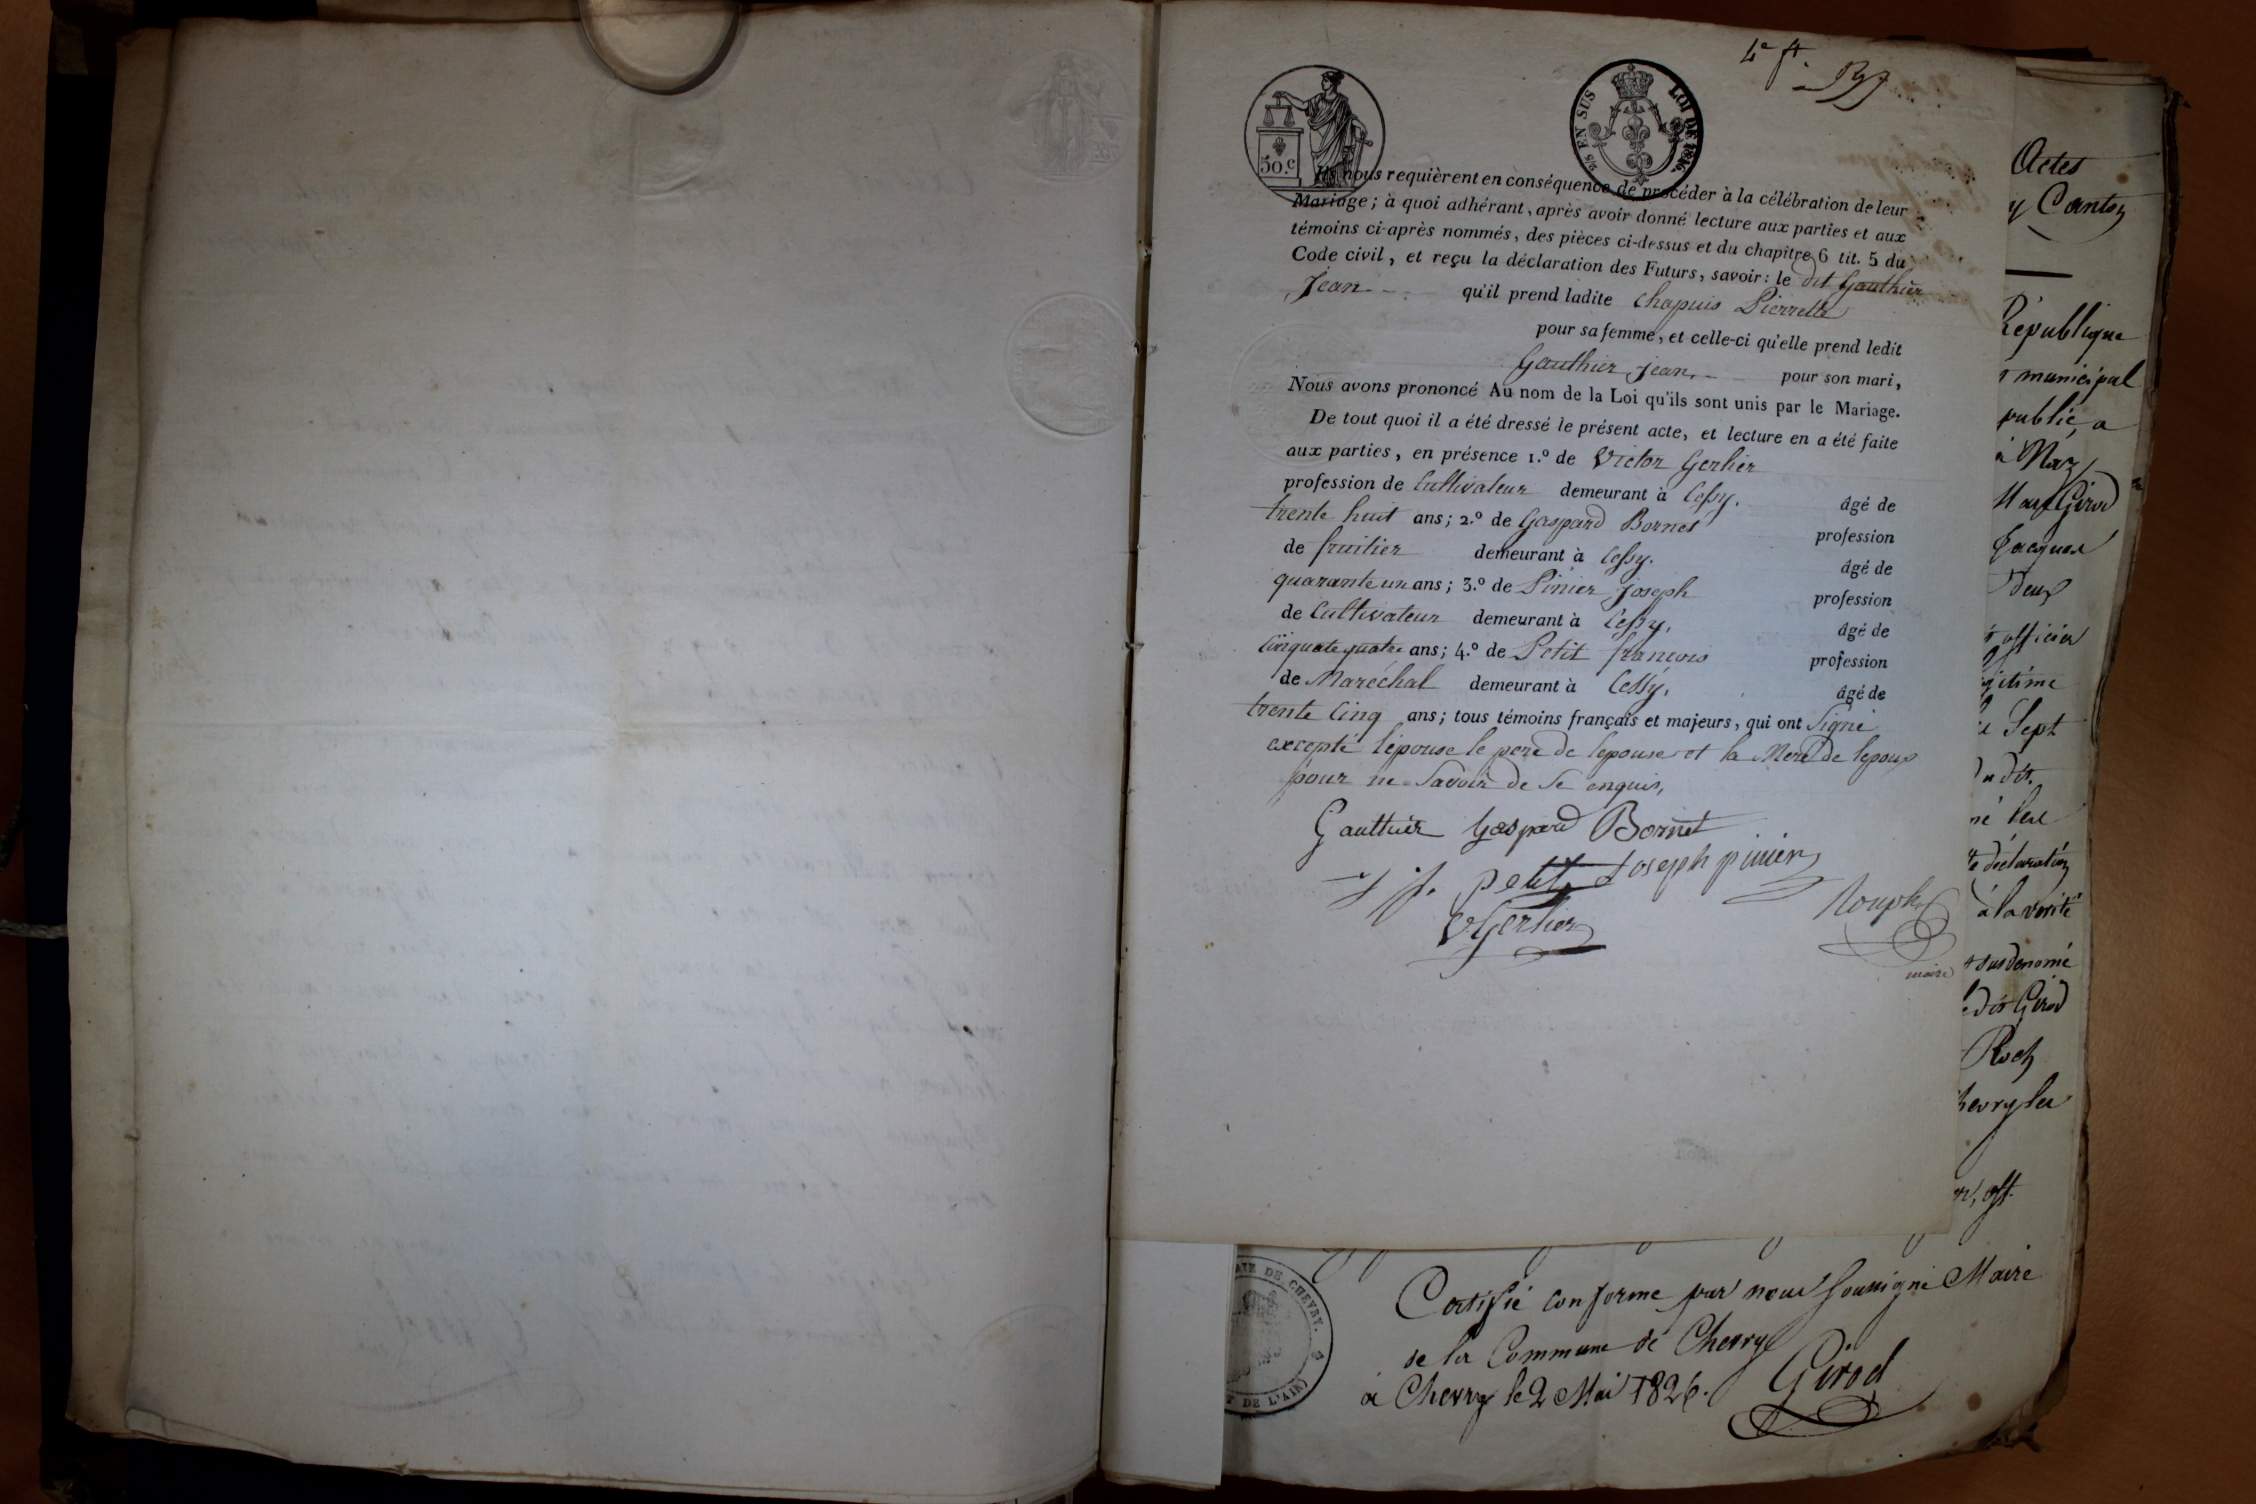 4e ft.
50.c
2/5 EN SUS LOI DE 1816.
Ils nous requièrent en conséquence de procéder à la célébration de leur
Mariage; à quoi adhérant, après avoir donné lecture aux parties et aux
témoins ci-après nommés, des pièces ci-dessus et du chapitre 6 tit. 5 du
Code civil, et reçu la déclaration des Futurs, savoir: le dit Gauthier
Jean qu'il prend ladite Chapuis Pierrette
pour sa femme, et celle-ci qu'elle prend ledit
Gauthier Jean, pour son mari,
Nous avons prononcé Au nom de la Loi qu'ils sont unis par le Mariage.
De tout quoi il a été dressé le présent acte, et lecture en a été faite
aux parties, en présence 1.º de Victor Gerlier
profession de Cultivateur demeurant à Cessy. âgé de
trente huit ans; 2.º de Gaspard Bornet profession
de fruitier demeurant à Cessy. âgé de
quarante un ans; 3.º de Pinier Joseph profession
de Cultivateur demeurant à Cessy, âgé de
cinquate quatre ans; 4.º de Petit françois profession
de Maréchal demeurant à Cessy, âgé de
trente cinq ans; tous témoins français et majeurs, qui ont signé
excepté l'épouse le pere de lepouse et la Mere de lepoux
pour ne savoir de ce enquis,
Gauthier Gaspard Bornet
j f. petit Joseph pinier
V. Gerlier
Rouph
maire
Actes
y Canton
République
municipal
publié, a
à Naz
Marf Girod
Jacques
deux
officier
gitime
Sept
u dit
né leu
déclaration
à la vérité
susdenomé
dit Girod
Roch
hevry les
off.
AIRIE DE CHEVRY.
DE L'AIN
Certifié conforme par nous soussigné Maire
de la Commune de Chevry
à Chevry le 2 Mai 1826.
Girod